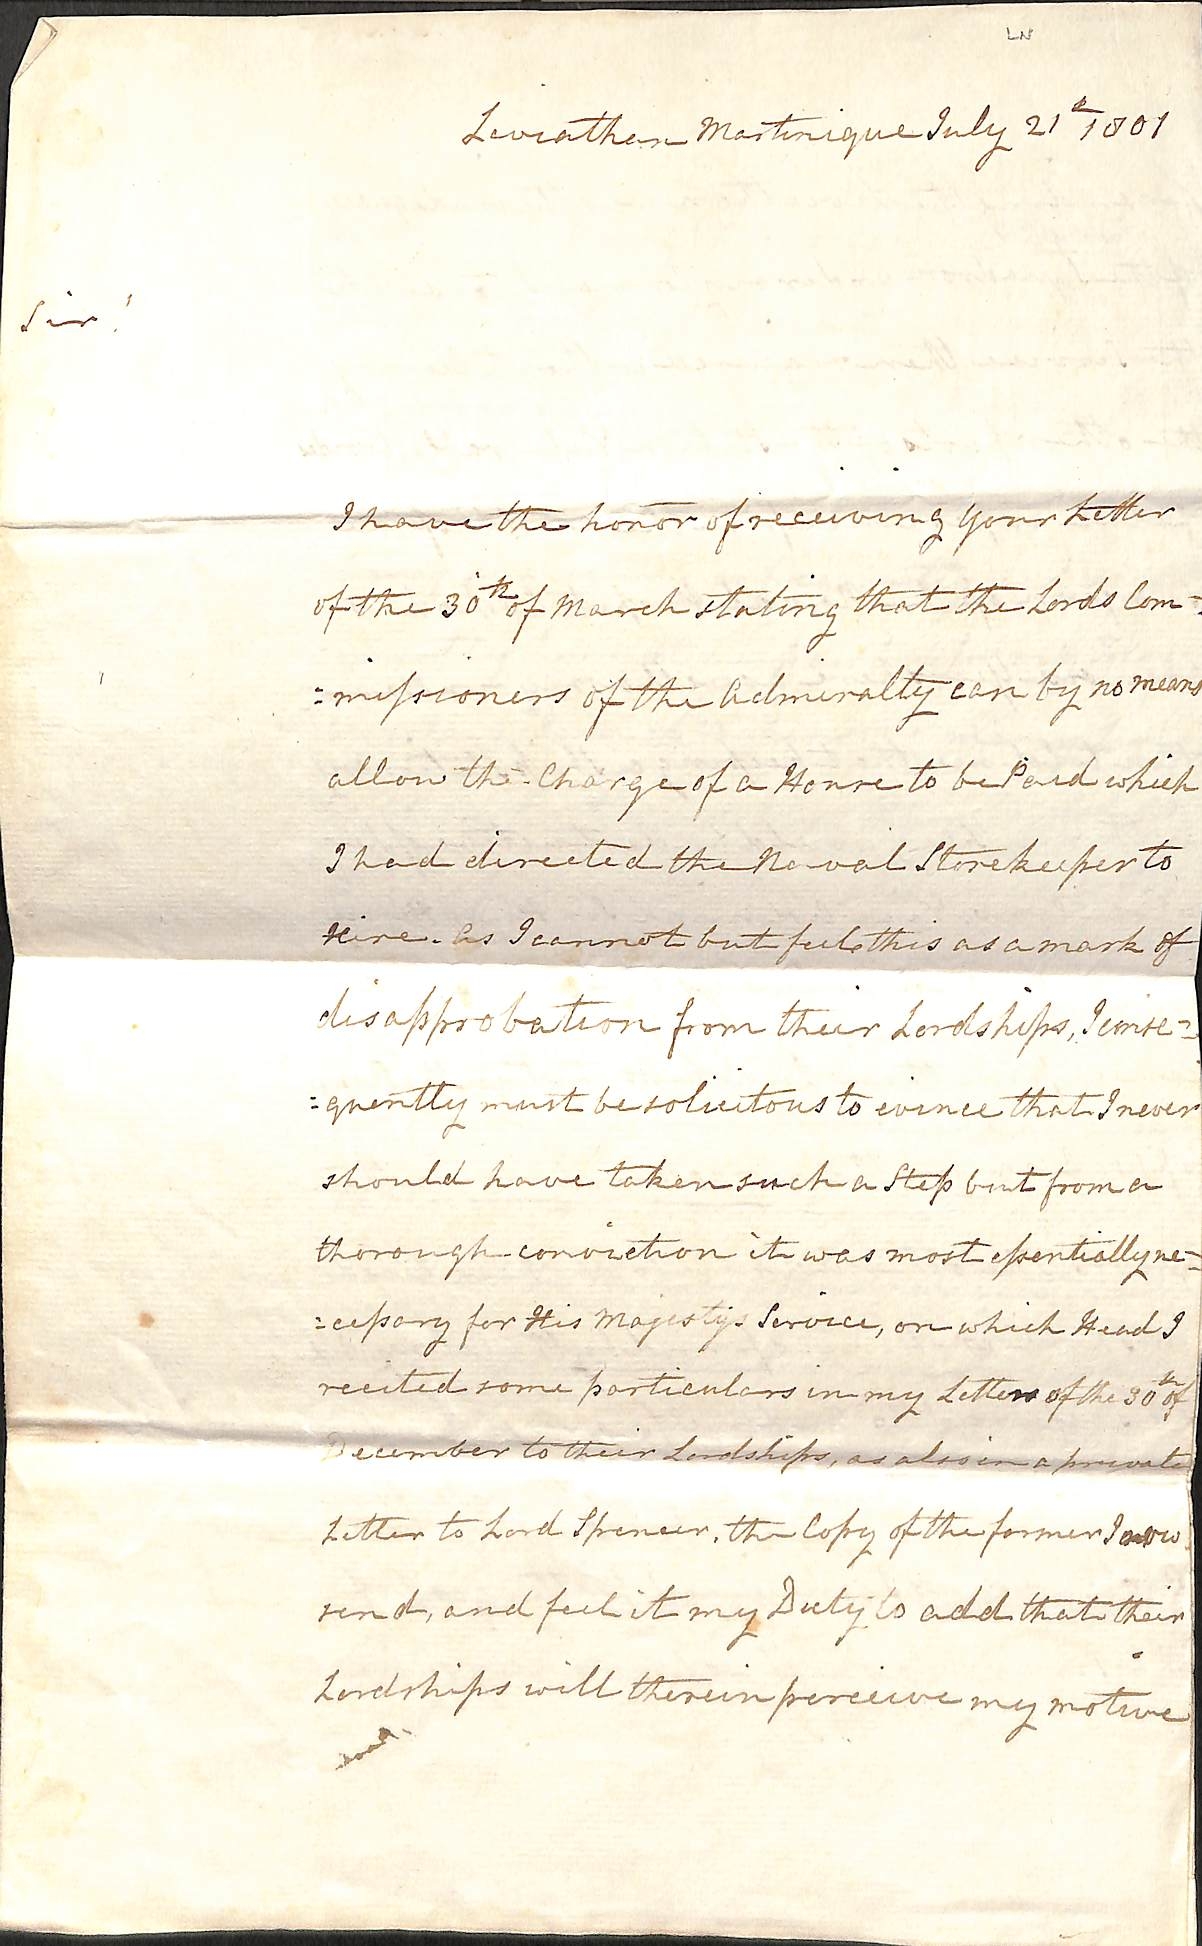 LN
Leviathan Martinique July 21st 1801
Sir!
I have the honor of receiving your Letter
of the 30th of March stating that the Lords Com=
=missioners of the Admiralty can by no means
allow the Charge of a House to be Paid which
I had directed the Naval Storekeeper to
Hire. As I cannot but feel this as a mark of
disapprobation from their Lordships, I conse=
=quently must be solicitous to evince that I never
should have taken such a Step but from a
thorough conviction it was most essentially ne=
=cessary for His Majestys Service, on which Head I
recited some particulars in my Letter of the 30th of
December to their Lordships, as also in a private
Letter to Lord Spencer, the Copy of the former I now
send, and feel it my Duty to add that their
Lordships will therein perceive my motive